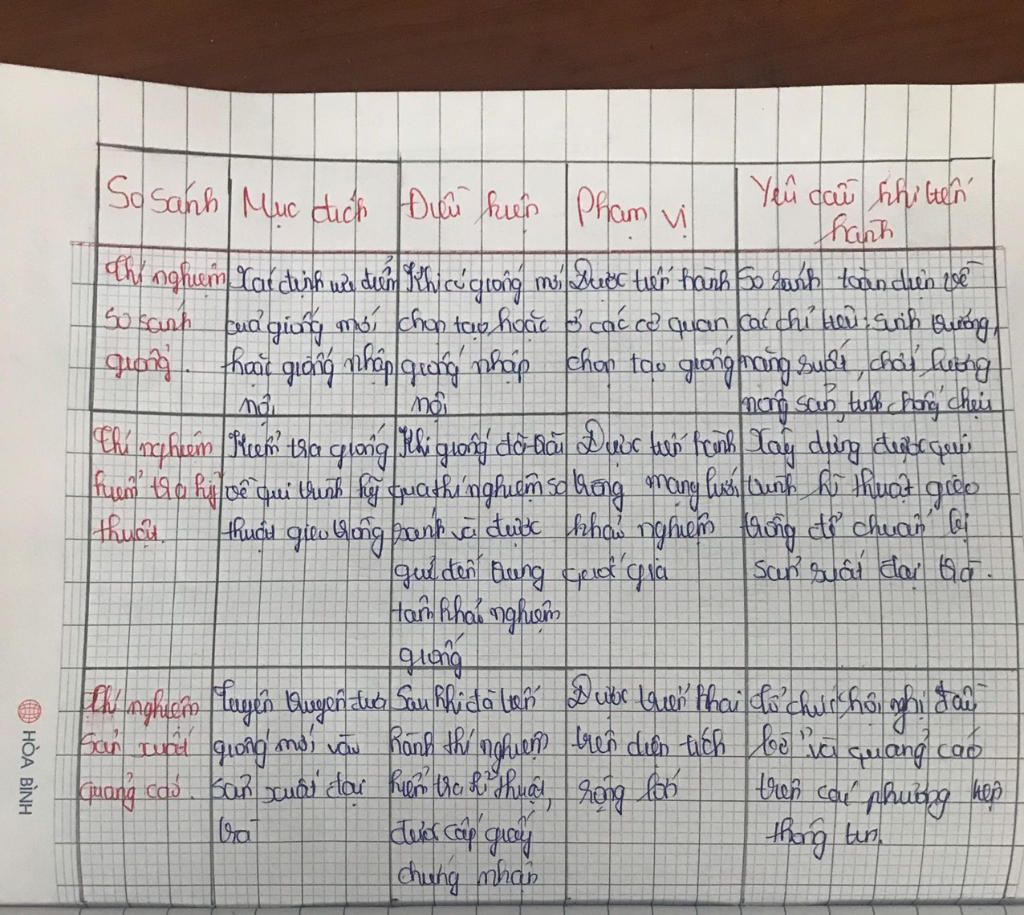 So sánh
Mục đích
Điều kiện
Phạm vị
Yêu cầu khi tiến
hành
Thí nghiệm
so sánh
giống.
Xác định ưu điểm
của giống mới
hoặc giống nhập
nội
Khi có giống mới
chọn tạo hoặc
giống nhập
nội
Được tiến hành
ở các cơ quan
chọn tạo giống
So sánh toàn diện về
các chỉ tiêu: sinh trưởng,
năng suất, chất lượng
nông sản, tính chống chịu
Thí nghiệm
kiểm tra kỹ
thuật.
Kiểm tra giống
về qui trình kỹ
thuật gieo trồng
Khi giống đã trải
qua thí nghiệm so
sánh và được
gửi đến trung
tâm khảo nghiệm
giống
Được tiến hành
trong mạng lưới
khảo nghiệm
quốc gia
Xây dựng được qui
trình kĩ thuật gieo
trồng để chuẩn bị
sản xuất đại trà.
Thí nghiệm
sản xuất
quảng cáo.
Tuyên truyền đưa
giống mới vào
sản xuất đại
trà
Sau khi đã tiến
hành thí nghiệm
kiểm tra kĩ thuật,
được cấp giấy
chứng nhận
Được triển khai
trên diện tích
rộng lớn
Tổ chức hội nghị đầu
bờ và quảng cáo
trên các phương tiện
thông tin.
HÒA BÌNH